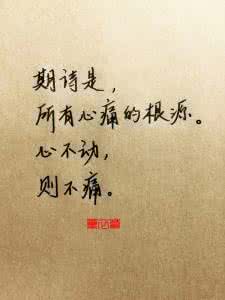 期诗是，
所有心痛的根源。
心不动，
则不痛。